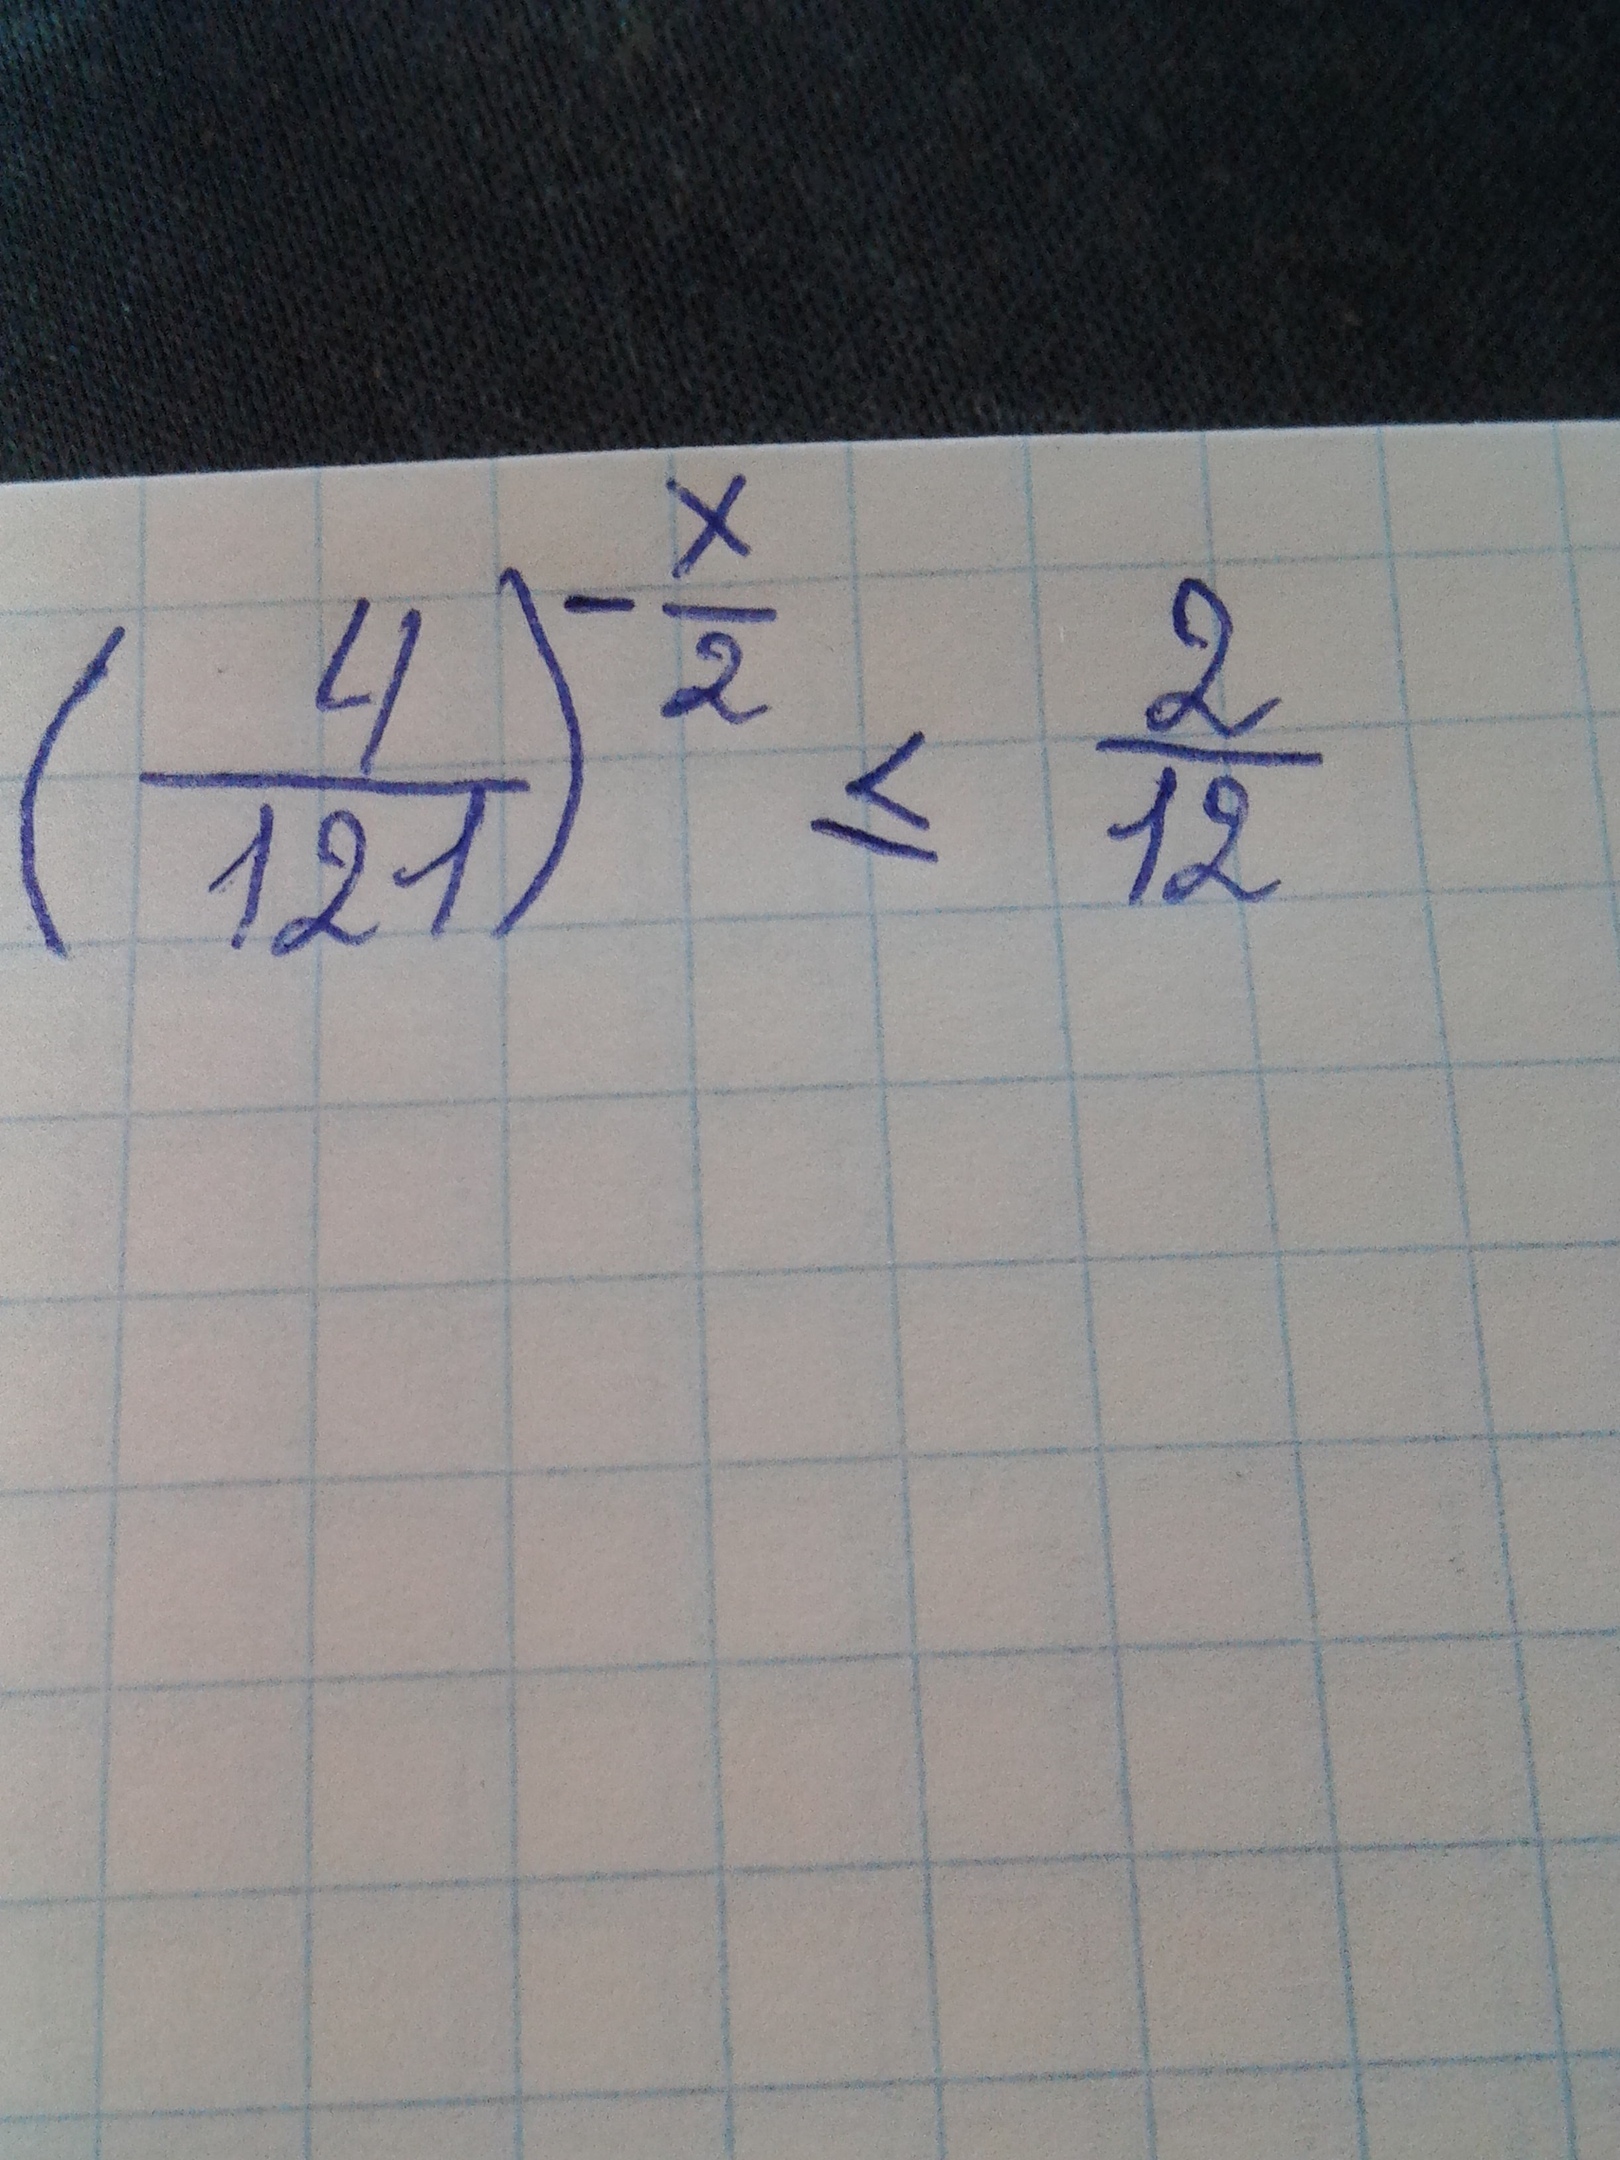 (4/121)^(-x/2) ≤ 2/12